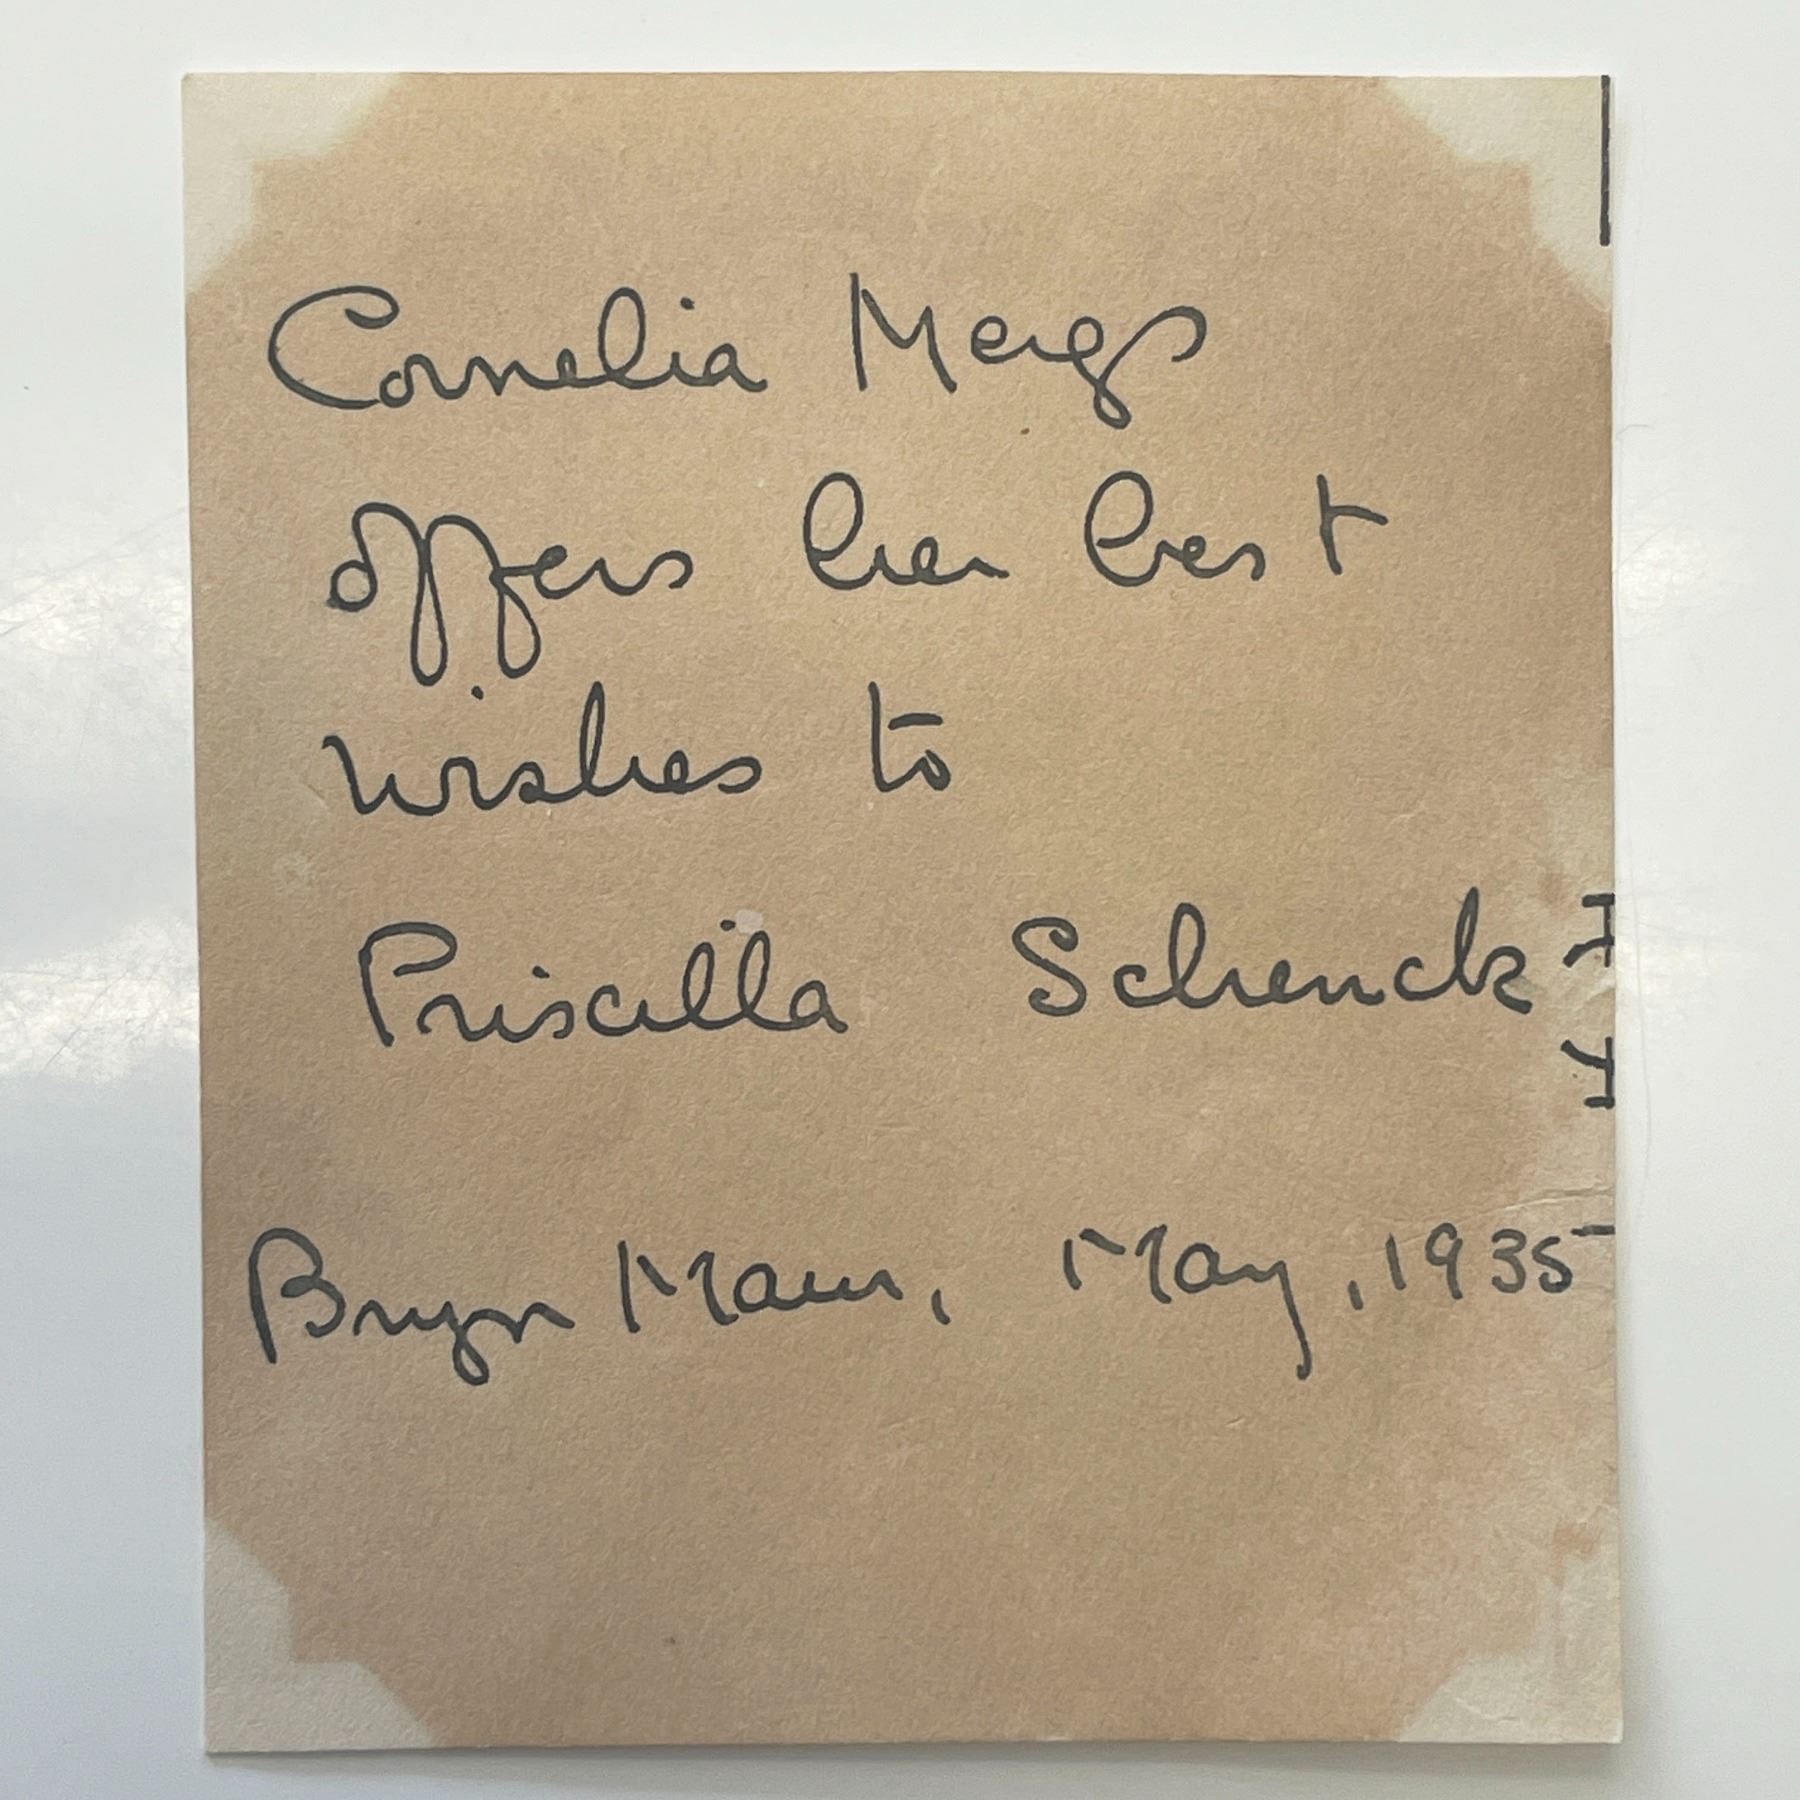 Cornelia Meigs
offers her best
wishes to
Priscilla Schenck
Bryn Mawr, May, 1935